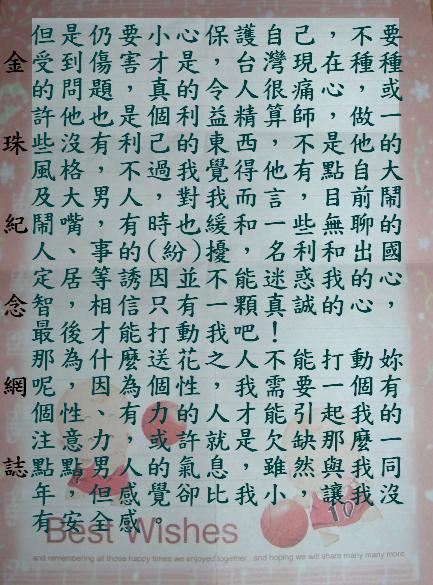 金珠紀念網誌
但是仍要小心保護自己，不要
受到傷害才是，台灣現在種種
的問題，真的令人很痛心，或
許他也是個利益精算師，做一
些沒有利己的東西，不是他的
風格，不過我覺得他有點自大
及大男人，對我而言，目前鬧
鬧嘴，有時也緩和一些無聊的
人、事的(紛)擾，名利和出國
定居等誘因並不能迷惑我的心
智，相信只有一顆真誠的心，
最後才能打動我吧！
那為什麼送花之人不能打動妳
呢，因為個性，我需要一個有
個性、有力的人才能引起我的
注意力，或許就是欠缺那麼一
點點男人的氣息，雖然與我同
年，但感覺卻比我小，讓我沒
有安全感。
Best Wishes
and remembering all those happy times we enjoyed together and hoping we will share many many more